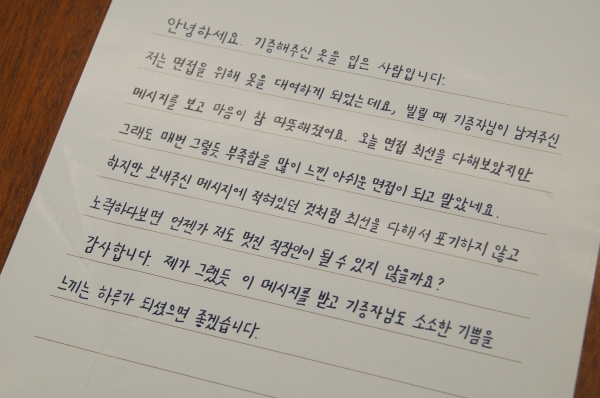 안녕하세요. 기증해주신 옷을 입은 사람입니다.
저는 면접을 위해 옷을 대여하게 되었는데요, 빌릴 때 기증자님이 남겨주신
메시지를 보고 마음이 참 따뜻해졌어요. 오늘 면접 최선을 다해보았지만
그래도 매번 그렇듯 부족함을 많이 느낀 아쉬운 면접이 되고 말았네요.
하지만 보내주신 메시지에 적혀있던 것처럼 최선을 다해서 포기하지 않고
노력하다보면 언젠가 저도 멋진 직장인이 될 수 있지 않을까요?
감사합니다. 제가 그랬듯 이 메시지를 받고 기증자님도 소소한 기쁨을
느끼는 하루가 되셨으면 좋겠습니다.